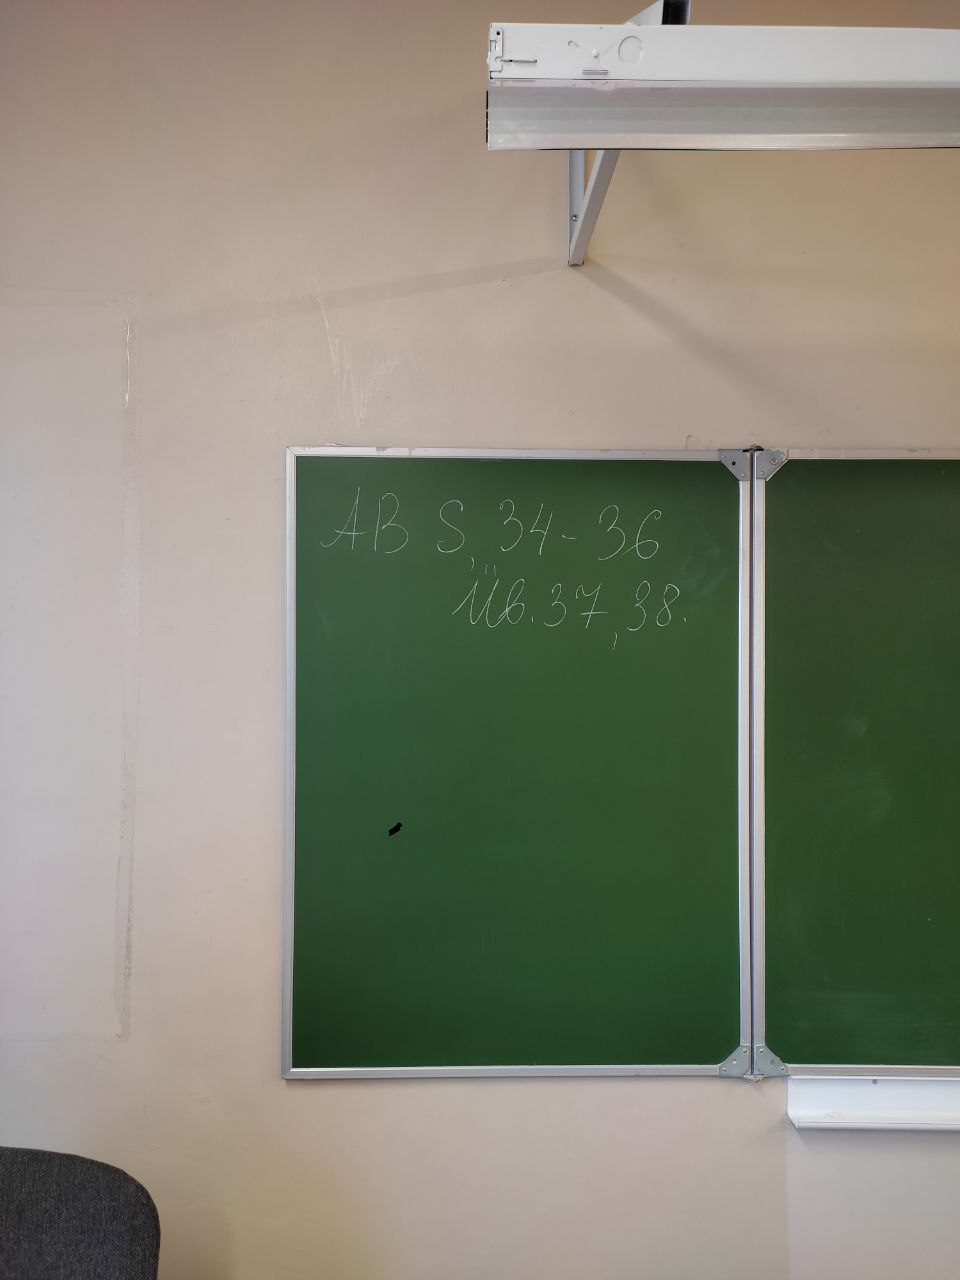 AB S, 34 - 36
Üb. 37, 38.